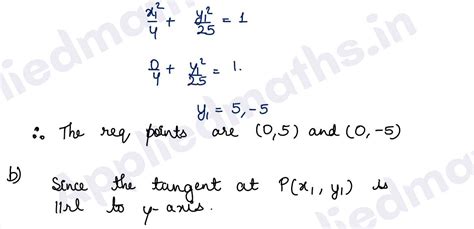 x₁²/4 + y₁²/25 = 1
0/4 + y₁²/25 = 1.
y₁ = 5, -5
∴ The req points are (0,5) and (0,-5)
b) Since the tangent at P(x₁, y₁) is
llrl to y-axis.
Appliedmaths.in